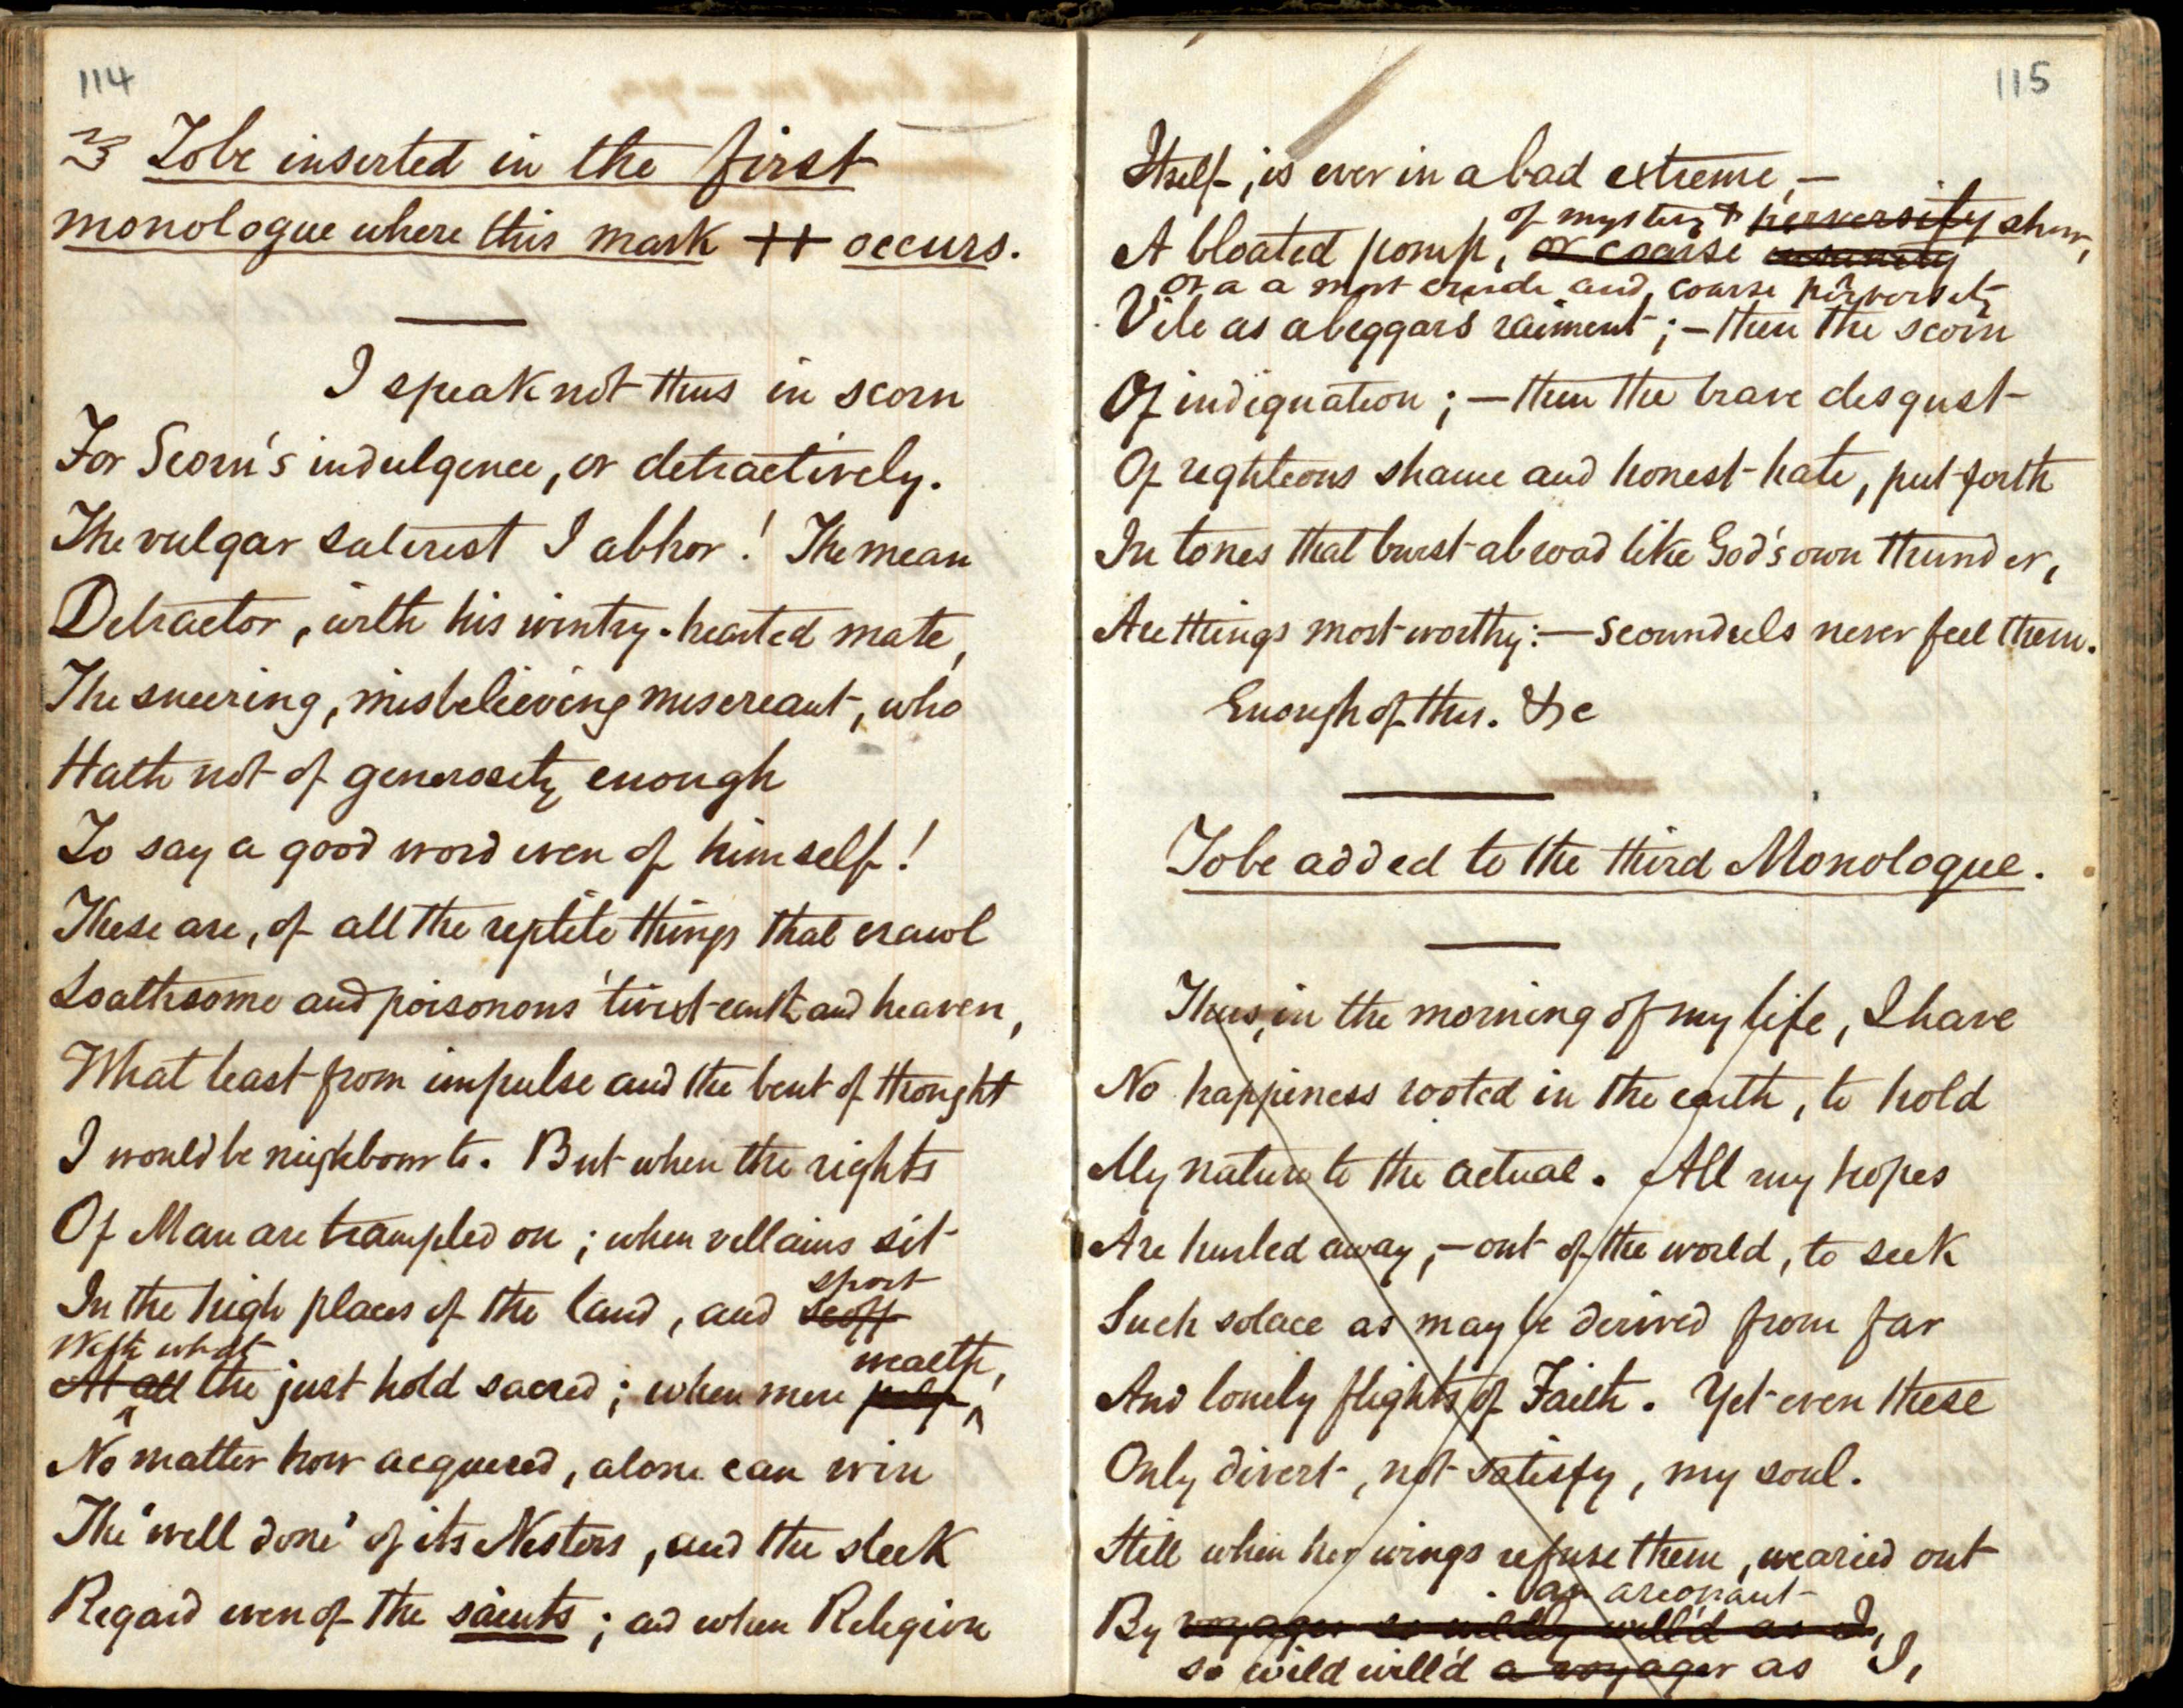 114
To be inserted in the first
monologue where this mark ++ occurs.
I speak not thus in scorn
For Scorn's indulgence, or detractively.
The vulgar saterist I abhor! The mean
Detractor, with his wintry-hearted mate,
The sneering, misbelieving miscreant, who
Hath not of generosity enough
To say a good word even of himself!
These are, of all the reptile things that crawl
Loathsome and poisonous 'twixt earth and heaven,
What least from impulse and the bent of thought
I would be neighbour to. But when the rights
Of Man are trampled on; when villains sit
sport
In the high places of the land, and scoff
With what
wealth,
At all the just hold sacred; when mere pelf,
No matter how acquired, alone can win
The 'well done' of its Nestors, and the sleek
Regard even of the saints; and when Religion
115
Itself, is ever in a bad extreme,—
of mystery & perversity show,
A bloated pomp, or coarse insanity
or a a most crude and coarse perversity
Vile as a beggars raiment;—then the scorn
Of indignation;—then the brave disgust
Of righteous shame and honest hate, put forth
In tones that burst abroad like God's own thunder,
Are things most worthy:—scoundrels never feel them.
Enough of this. &c
To be added to the third Monologue.
Thus, in the morning of my life, I have
No happiness rooted in the earth, to hold
My nature to the actual. All my hopes
Are hurled away,—out of the world, to seek
Such solace as may be derived from far
And lonely flights of Faith. Yet even these
Only divert, not satisfy, my soul.
Still when her wings refuse them, wearied out
an areonaut
By voyager so wildly will'd as I,
so wild will'd a voyager as I,